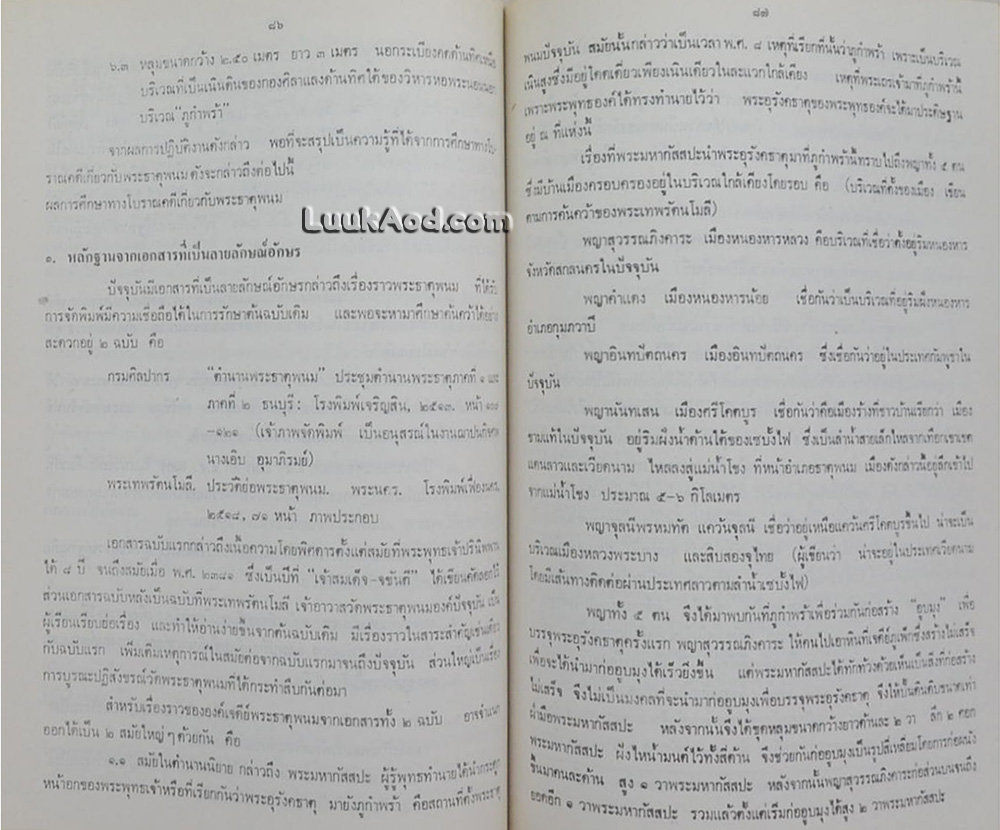 ๘๖
๖.๓ หลุมขนาดกว้าง ๒.๕๐ เมตร ยาว ๓ เมตร นอกระเบียงคตด้านทิศเหนือ
บริเวณที่เป็นเนินดินของกองศิลาแลงด้านทิศใต้ของวิหารหอพระนอน
บริเวณ "ภูกำพร้า"
จากผลการปฏิบัติงานดังกล่าว พอที่จะสรุปเป็นความรู้ที่ได้จากการศึกษาทางโบ
ราณคดีเกี่ยวกับพระธาตุพนม ดังจะกล่าวถึงต่อไปนี้
ผลการศึกษาทางโบราณคดีเกี่ยวกับพระธาตุพนม
LuukAod.com
๑. หลักฐานจากเอกสารที่เป็นลายลักษณ์อักษร
ปัจจุบันมีเอกสารที่เป็นลายลักษณ์อักษรกล่าวถึงเรื่องราวพระธาตุพนม ที่ได้รับ
การจัดพิมพ์มีความเชื่อถือได้ในการรักษาต้นฉบับเดิม และพอจะหามาศึกษาค้นคว้าได้อย่าง
สะดวกอยู่ ๒ ฉบับ คือ
กรมศิลปากร "ตำนานพระธาตุพนม" ประชุมตำนานพระธาตุภาคที่ ๑ และ
ภาคที่ ๒ ธนบุรี: โรงพิมพ์เจริญสิน, ๒๕๑๓. หน้า
-๑๒๑ (เจ้าภาพจัดพิมพ์ เป็นอนุสรณ์ในงานฌาปนกิจศพ
นางเอิบ อุมาภิรมย์)
พระเทพรัตนโมลี. ประวัติย่อพระธาตุพนม. พระนคร. โรงพิมพ์เฟื่องนคร,
๒๕๑๘, ๗๑ หน้า ภาพประกอบ
เอกสารฉบับแรกกล่าวถึงเนื้อความโดยพิศดารตั้งแต่สมัยที่พระพุทธเจ้าปรินิพพาน
ได้ ๘ ปี จนถึงสมัยเมื่อ พ.ศ. ๒๓๘๑ ซึ่งเป็นปีที่ "เจ้าสมเด็จ-จขันตี" ได้เขียนคัดลอกไว้
ส่วนเอกสารฉบับหลังเป็นฉบับที่พระเทพรัตนโมลี เจ้าอาวาสวัดพระธาตุพนมองค์ปัจจุบัน เป็น
ผู้เรียบเรียงย่อเรื่อง และทำให้อ่านง่ายขึ้นจากต้นฉบับเดิม มีเรื่องราวในสาระสำคัญเช่นเดียว
กับฉบับแรก เพิ่มเติมเหตุการณ์ในสมัยต่อจากฉบับแรกมาจนถึงปัจจุบัน ส่วนใหญ่เป็นเรื่อง
การบูรณะปฏิสังขรณ์วัดพระธาตุพนมที่ได้กระทำสืบกันต่อมา
สำหรับเรื่องราวขององค์เจดีย์พระธาตุพนมจากเอกสารทั้ง ๒ ฉบับ อาจจำแนก
ออกได้เป็น ๒ สมัยใหญ่ๆ ด้วยกัน คือ
๑.๑ สมัยในตำนานนิยาย กล่าวถึง พระมหากัสสปะ ผู้รู้พุทธทำนายได้นำกระดูก
หน้าอกของพระพุทธเจ้าหรือที่เรียกกันว่าพระอุรังคธาตุ มายังภูกำพร้า คือสถานที่ตั้งพระธาตุ
๘๗
พนมปัจจุบัน สมัยนั้นกล่าวว่าเป็นเวลา พ.ศ. ๘ เหตุที่เรียกที่นั้นว่าภูกำพร้า เพราะเป็นบริเวณ
เนินสูงซึ่งมีอยู่โดดเดี่ยวเพียงเนินเดียวในละแวกใกล้เคียง เหตุที่พระเถรเจ้ามาที่ภูกำพร้านี้
เพราะพระพุทธองค์ได้ทรงทำนายไว้ว่า พระอุรังคธาตุของพระพุทธองค์จะได้มาประดิษฐาน
อยู่ ณ ที่แห่งนี้
เรื่องที่พระมหากัสสปะนำพระอุรังคธาตุมาที่ภูกำพร้านี้ทราบไปถึงพญาทั้ง ๕ ตน
ซึ่งมีบ้านเมืองครอบครองอยู่ในบริเวณใกล้เคียงโดยรอบ คือ (บริเวณที่ตั้งของเมือง เขียน
ตามการค้นคว้าของพระเทพรัตนโมลี)
พญาสุวรรณภิงคาระ เมืองหนองหารหลวง คือบริเวณที่เชื่อว่าตั้งอยู่ริมหนองหาร
จังหวัดสกลนครในปัจจุบัน
พญาคำแดง เมืองหนองหารน้อย เชื่อกันว่าเป็นบริเวณที่อยู่ริมฝั่งหนองหาร
อำเภอกุมภวาปี
พญาอินทปัตถนคร เมืองอินทปัตถนคร ซึ่งเชื่อกันว่าอยู่ในประเทศกัมพูชาใน
ปัจจุบัน
พญานันทเสน เมืองศรีโคตบูร เชื่อกันว่าคือเมืองร้างที่ชาวบ้านเรียกว่า เมือง
ขามแท้ในปัจจุบัน อยู่ริมฝั่งน้ำด้านใต้ของเซบั้งไฟ ซึ่งเป็นลำน้ำสายเล็กไหลจากเทือกเขาเขต
แดนลาวและเวียดนาม ไหลลงสู่แม่น้ำโขง ที่หน้าอำเภอธาตุพนม เมืองดังกล่าวนี้อยู่ลึกเข้าไป
จากแม่น้ำโขง ประมาณ ๕-๖ กิโลเมตร
พญาจุลนีพรหมทัต แคว้นจุลนี เชื่อว่าอยู่เหนือแคว้นศรีโคตบูรขึ้นไป น่าจะเป็น
บริเวณเมืองหลวงพระบาง และสิบสองจุไทย (ผู้เขียนว่า น่าจะอยู่ในประเทศเวียดนาม
โดยมีเส้นทางติดต่อผ่านประเทศลาวตามลำน้ำเซบั้งไฟ)
พญาทั้ง ๕ ตน จึงได้มาพบกันที่ภูกำพร้าเพื่อร่วมกันก่อสร้าง "อูบมุง" เพื่อ
บรรจุพระอุรังคธาตุครั้งแรก พญาสุวรรณภิงคาระ ให้คนไปเอาหินที่เจดีย์ภูเพ็กซึ่งสร้างไม่เสร็จ
เพื่อจะได้นำมาก่ออูบมุงได้เร็วยิ่งขึ้น แต่พระมหากัสสปะได้ทักท้วงด้วยเห็นเป็นสิ่งที่ก่อสร้าง
ไม่เสร็จ จึงไม่เป็นมงคลที่จะนำมาก่ออูบมุงเพื่อบรรจุพระอุรังคธาตุ จึงให้ปั้นดินดิบขนาดเท่า
ฝ่ามือพระมหากัสสปะ หลังจากนั้นได้ขุดหลุมขนาดกว้างยาวด้านละ ๒ วา ลึก ๒ ศอก
พระมหากัสสปะ ฝังไหน้ำมนต์ไว้ทั้งสี่ด้าน จึงช่วยกันก่ออูบมุงเป็นรูปสี่เหลี่ยมโดยการก่อผนัง
ขึ้นมาคนละด้าน สูง ๑ วาพระมหากัสสปะ หลังจากนั้นพญาสุวรรณภิงคาระก่อส่วนบนจนถึง
ยอดอีก ๑ วาพระมหากัสสปะ รวมแล้วตั้งแต่เริ่มก่ออูบมุงได้สูง ๒ วาพระมหากัสสปะ